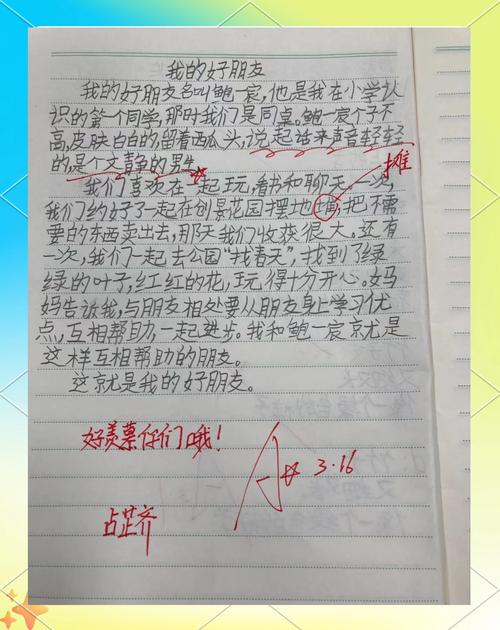 我的好朋友
我的好朋友名叫鲍一宸,他是我在小学认
识的第一个同学,那时我们是同桌。鲍一宸个子不
高,皮肤白白的,留着西瓜头,说起话来声音轻轻
的,是个文静的男生。
我们喜欢在一起玩,看书和聊天。一次,
摊
我们约好了一起在创景花园摆地,把不需
要的东西卖出去,那天我们收获很大。还有
一次,我们一起去公园“找春天”,找到了绿
绿的叶子,红红的花,玩得十分开心。妈
妈告诉我,与朋友相处要从朋友身上学习优
点,互相帮助,一起进步。我和鲍一宸就是
这样互相帮助的朋友。
这就是我的好朋友。
好羡慕你们哦!
3.16
占芷齐